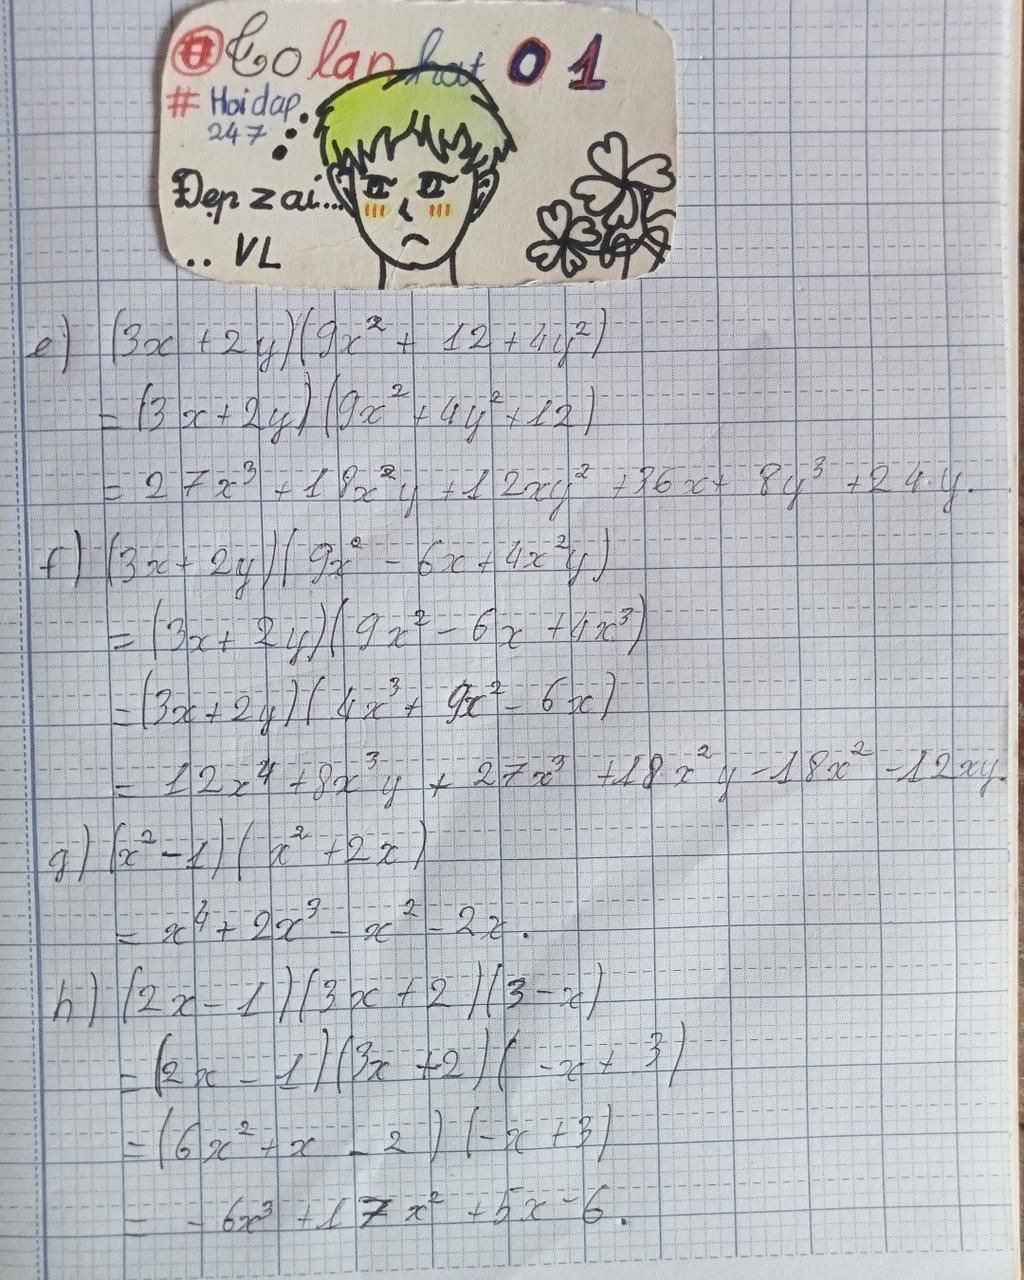 #Colanhat01
# Hoidap
247
Đẹp zai...
.. VL
e) (3x + 2y)(9x² + 12 + 4y²)
= (3x + 2y)(9x² + 4y² + 12)
= 27x³ + 18x²y + 12xy² + 36x + 8y³ + 24y.
f) (3x + 2y)(9x² - 6x + 4x²y)
= (3x + 2y)(9x² - 6x + 4x³)
= (3x + 2y)(4x³ + 9x² - 6x)
= 12x⁴ + 8x³y + 27x³ + 18x²y - 18x² - 12xy.
g) (x² - 1)(x² + 2x)
= x⁴ + 2x³ - x² - 2x.
h) (2x - 1)(3x + 2)(3 - x)
= (2x - 1)(3x + 2)(-x + 3)
= (6x² + x - 2)(-x + 3)
= -6x³ + 17x² + 5x - 6.